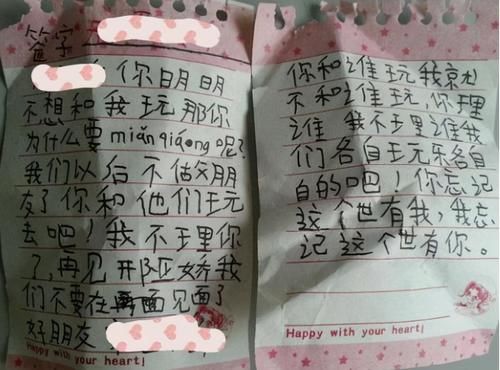 签字
你明明
不想和我玩那你
为什么要miǎnqiáng呢?
我们以后不做朋
友了你和他们玩
去吧!我不理你
了,再见
我
们不要在再面见面了
好朋友
Happy with your heart!
你和谁玩我京尤
不和谁玩,你理
谁 我不理谁我
们各自玩乐各自
自的吧!你忘记
这个世有我,我忘
记这个世有你。
Happy with your heart!